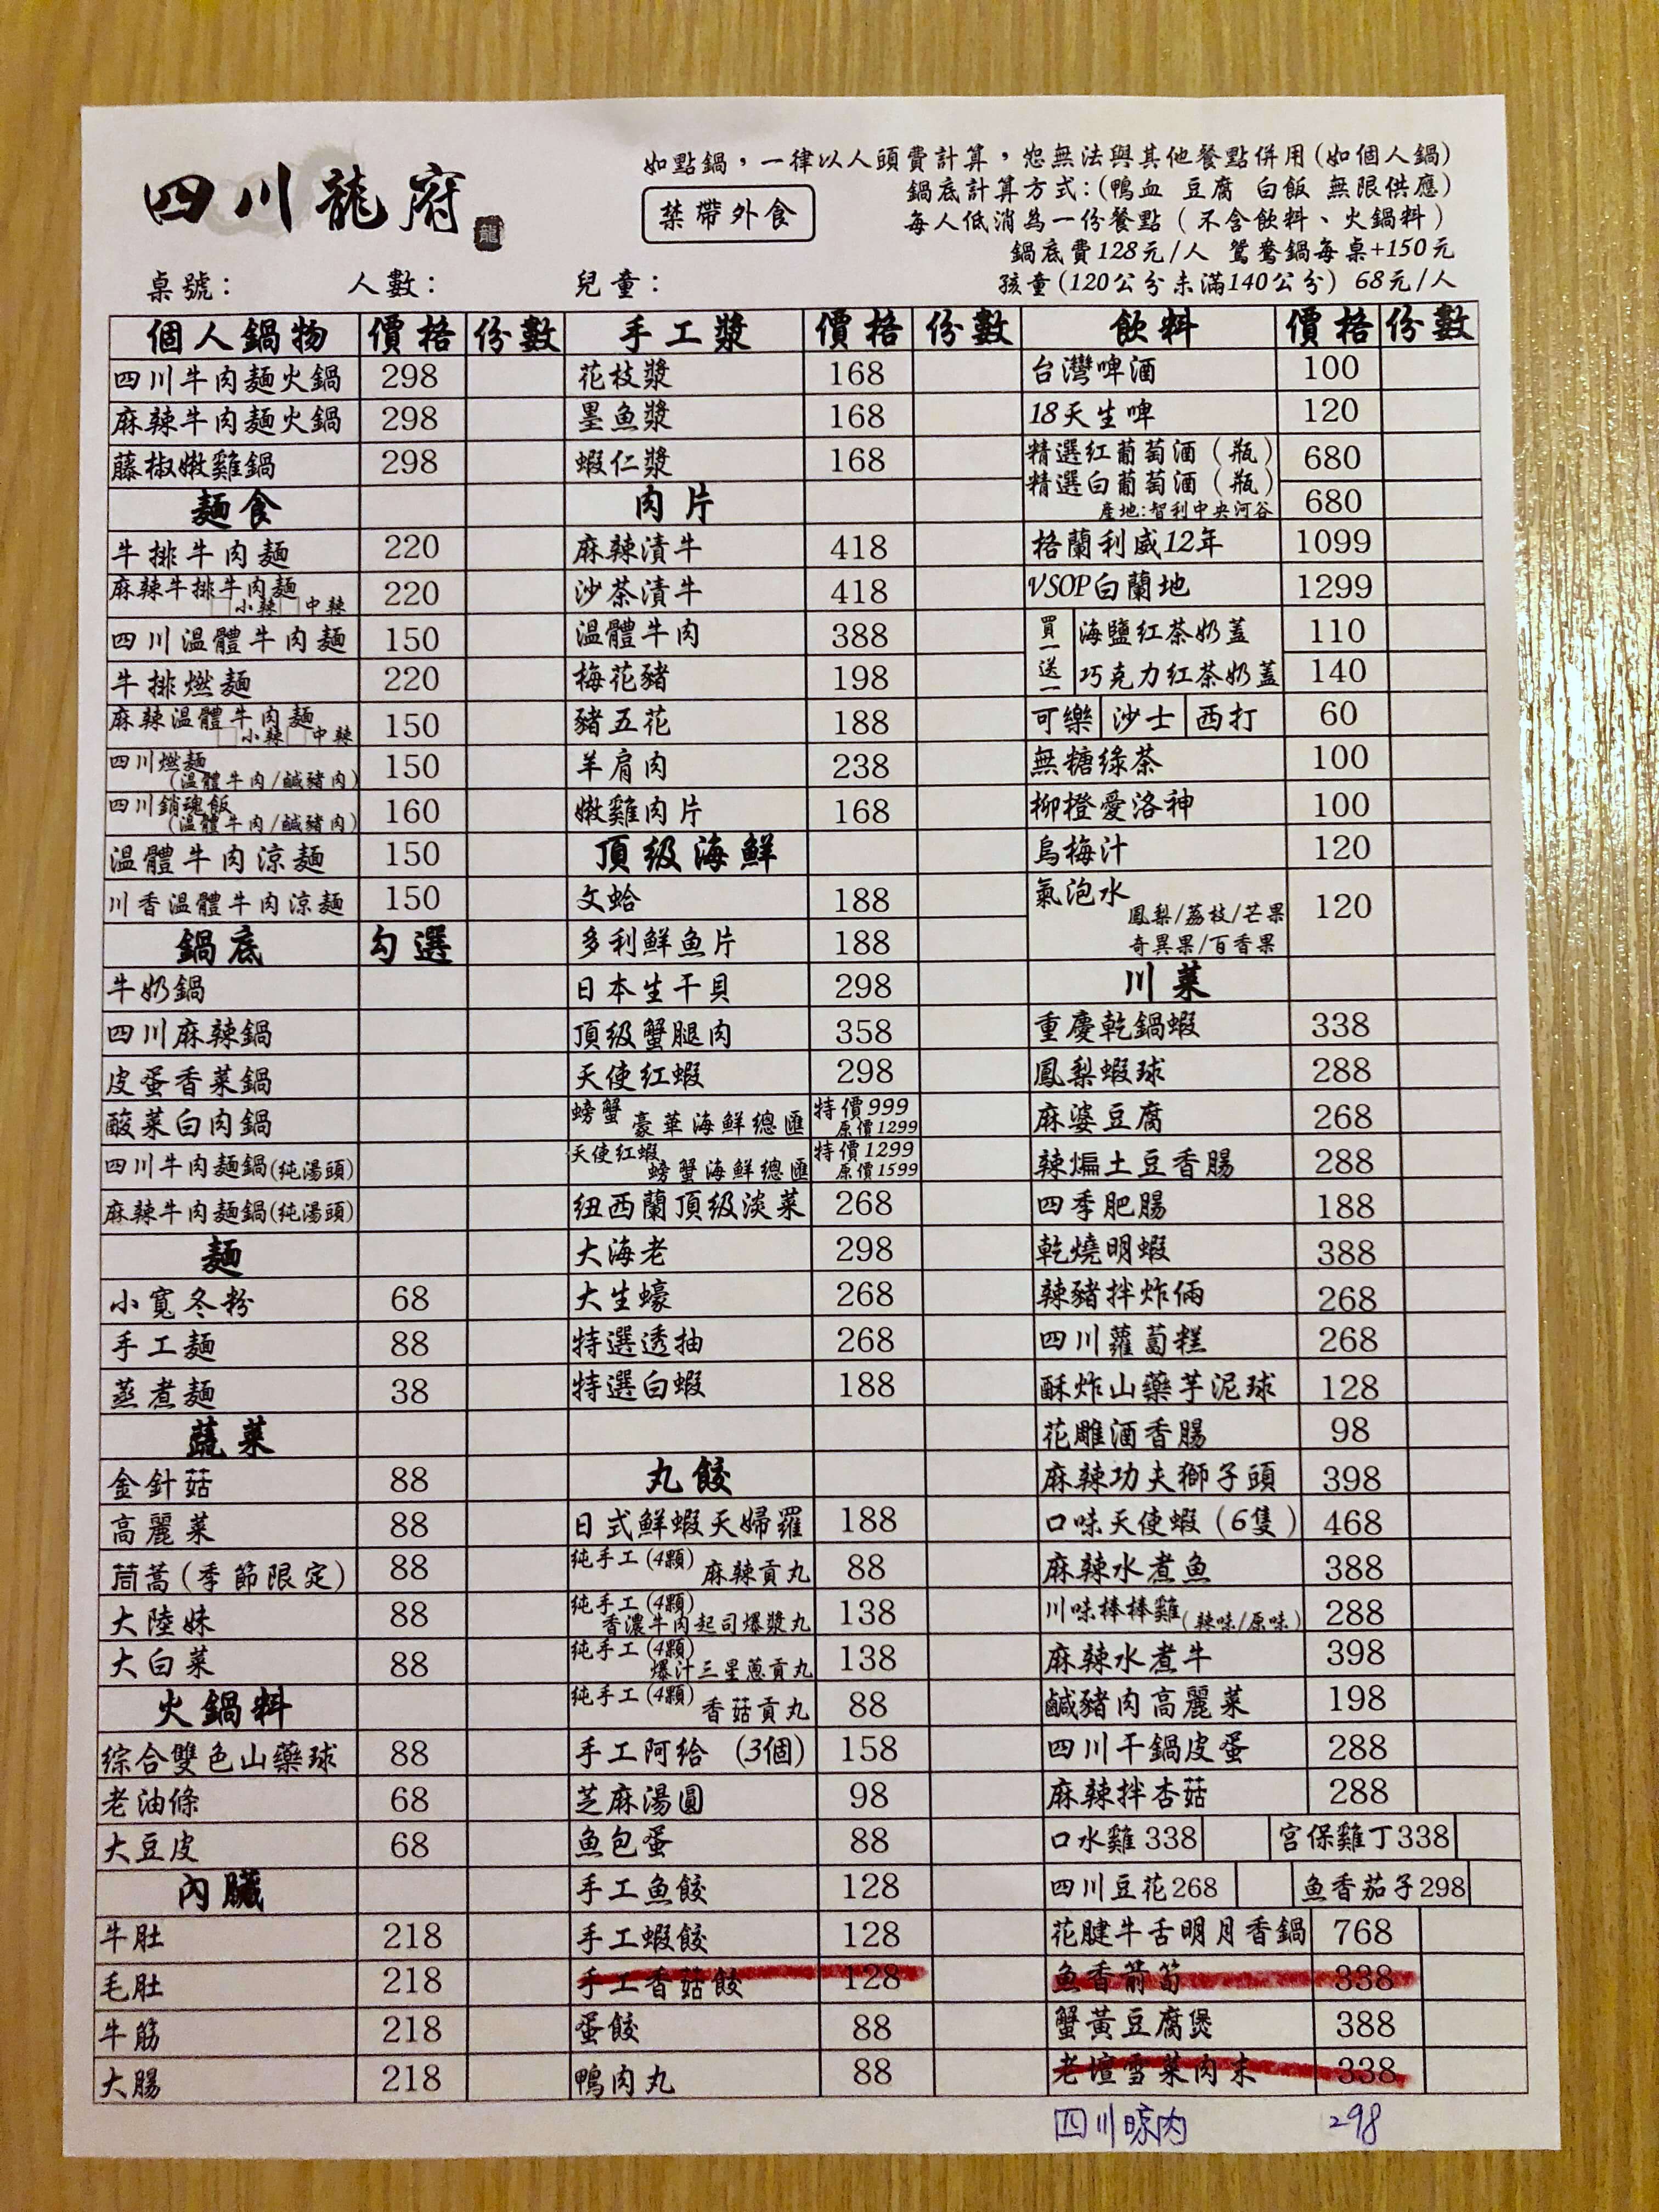 四川龍府
龍
如點鍋,一律以人頭費計算,恕無法與其他餐點併用(如個人鍋)
鍋底計算方式:(鴨血 豆腐 白飯 無限供應)
禁帶外食
每人低消為一份餐點(不含飲料、火鍋料)
鍋底費128元/人 鴛鴦鍋每桌+150元
孩童(120公分未滿140公分) 68元/人
桌號: 人數: 兒童:
個人鍋物 價格 份數
四川牛肉麵火鍋 298
麻辣牛肉麵火鍋 298
藤椒嫩雞鍋 298
麵食
牛排牛肉麵 220
麻辣牛排牛肉麵 220
□小辣□中辣
四川溫體牛肉麵 150
牛排燃麵 220
麻辣溫體牛肉麵 150
□小辣□中辣
四川燃麵 150
(溫體牛肉/鹹豬肉)
四川銷魂飯 160
(溫體牛肉/鹹豬肉)
溫體牛肉涼麵 150
川香溫體牛肉涼麵 150
鍋底 勾選
牛奶鍋
四川麻辣鍋
皮蛋香菜鍋
酸菜白肉鍋
四川牛肉麵鍋(純湯頭)
麻辣牛肉麵鍋(純湯頭)
麵
小寬冬粉 68
手工麵 88
蒸煮麵 38
蔬菜
金針菇 88
高麗菜 88
茼蒿(季節限定) 88
大陸妹 88
大白菜 88
火鍋料
綜合雙色山藥球 88
老油條 68
大豆皮 68
內臟
牛肚 218
毛肚 218
牛筋 218
大腸 218
手工漿 價格 份數
花枝漿 168
墨魚漿 168
蝦仁漿 168
肉片
麻辣漬牛 418
沙茶漬牛 418
溫體牛肉 388
梅花豬 198
豬五花 188
羊肩肉 238
嫩雞肉片 168
頂級海鮮
文蛤 188
多利鮮魚片 188
日本生干貝 298
頂級蟹腿肉 358
天使紅蝦 298
螃蟹 豪華海鮮總匯 特價999
原價1299
天使紅蝦 特價1299
螃蟹海鮮總匯 原價1599
紐西蘭頂級淡菜 268
大海老 298
大生蠔 268
特選透抽 268
特選白蝦 188
丸餃
日式鮮蝦天婦羅 188
純手工(4顆) 麻辣貢丸 88
純手工(4顆) 138
香濃牛肉起司爆漿丸
純手工(4顆) 138
爆汁三星蔥貢丸
純手工(4顆) 香菇貢丸 88
手工阿給 (3個) 158
芝麻湯圓 98
魚包蛋 88
手工魚餃 128
手工蝦餃 128
手工香菇餃 128
蛋餃 88
鴨肉丸 88
飲料 價格 份數
台灣啤酒 100
18天生啤 120
精選紅葡萄酒(瓶) 680
精選白葡萄酒(瓶) 680
產地:智利中央河谷
格蘭利威12年 1099
VSOP白蘭地 1299
買一送一
海鹽紅茶奶蓋 110
巧克力紅茶奶蓋 140
可樂 沙士 西打 60
無糖綠茶 100
柳橙愛洛神 100
烏梅汁 120
氣泡水 120
鳳梨/荔枝/芒果
奇異果/百香果
川菜
重慶乾鍋蝦 338
鳳梨蝦球 288
麻婆豆腐 268
辣煸土豆香腸 288
四季肥腸 188
乾燒明蝦 388
辣豬拌炸倆 268
四川蘿蔔糕 268
酥炸山藥芋泥球 128
花雕酒香腸 98
麻辣功夫獅子頭 398
口味天使蝦(6隻) 468
麻辣水煮魚 388
川味棒棒雞(辣味/原味) 288
麻辣水煮牛 398
鹹豬肉高麗菜 198
四川干鍋皮蛋 288
麻辣拌杏菇 288
口水雞 338 宮保雞丁338
四川豆花268 魚香茄子298
花腱牛舌明月香鍋 768
魚香箭筍 338
蟹黃豆腐煲 388
老壇雪菜肉末 338
四川晾肉 298